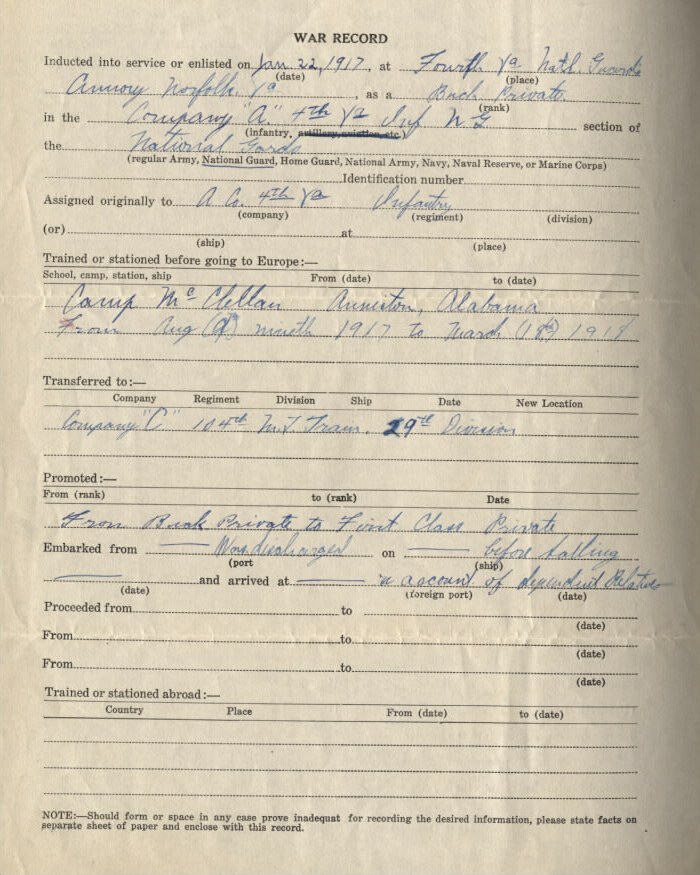 WAR RECORD
Inducted into service or enlisted on Jan. 22, 1917, at Fourth Va Natl. Guards
(date) (place)
Armory Norfolk. Va , as a Buck Private.
(rank)
in the Company "A." 4th Va Inf N G section of
(infantry, artillery, aviation, etc.)
the National Gards
(regular Army, National Guard, Home Guard, National Army, Navy, Naval Reserve, or Marine Corps)
Identification number
Assigned originally to A Co. 4th Va Infantry
(company) (regiment) (division)
(or) at
(ship) (place)
Trained or stationed before going to Europe:—
School, camp, station, ship From (date) to (date)
Camp Mc Clellan Anniston, Alabama
From Aug month 1917 to March (18th)
Transferred to:—
Company Regiment Division Ship Date New Location
Company "C" 104th M.T. Train. 29th Division
Promoted:—
From (rank) to (rank) Date
From Buck Private to First Class Private
Embarked from Was discharged on before
(port (ship)
and arrived at account of dependent Relatives
(date) (foreign port) (date)
Proceeded from to
(date)
From to
(date)
From to
(date)
Trained or stationed abroad:—
Country Place From (date) to (date)
NOTE:—Should form or space in any case prove inadequat for recording the desired information, please state facts on
separate sheet of paper and enclose with this record.